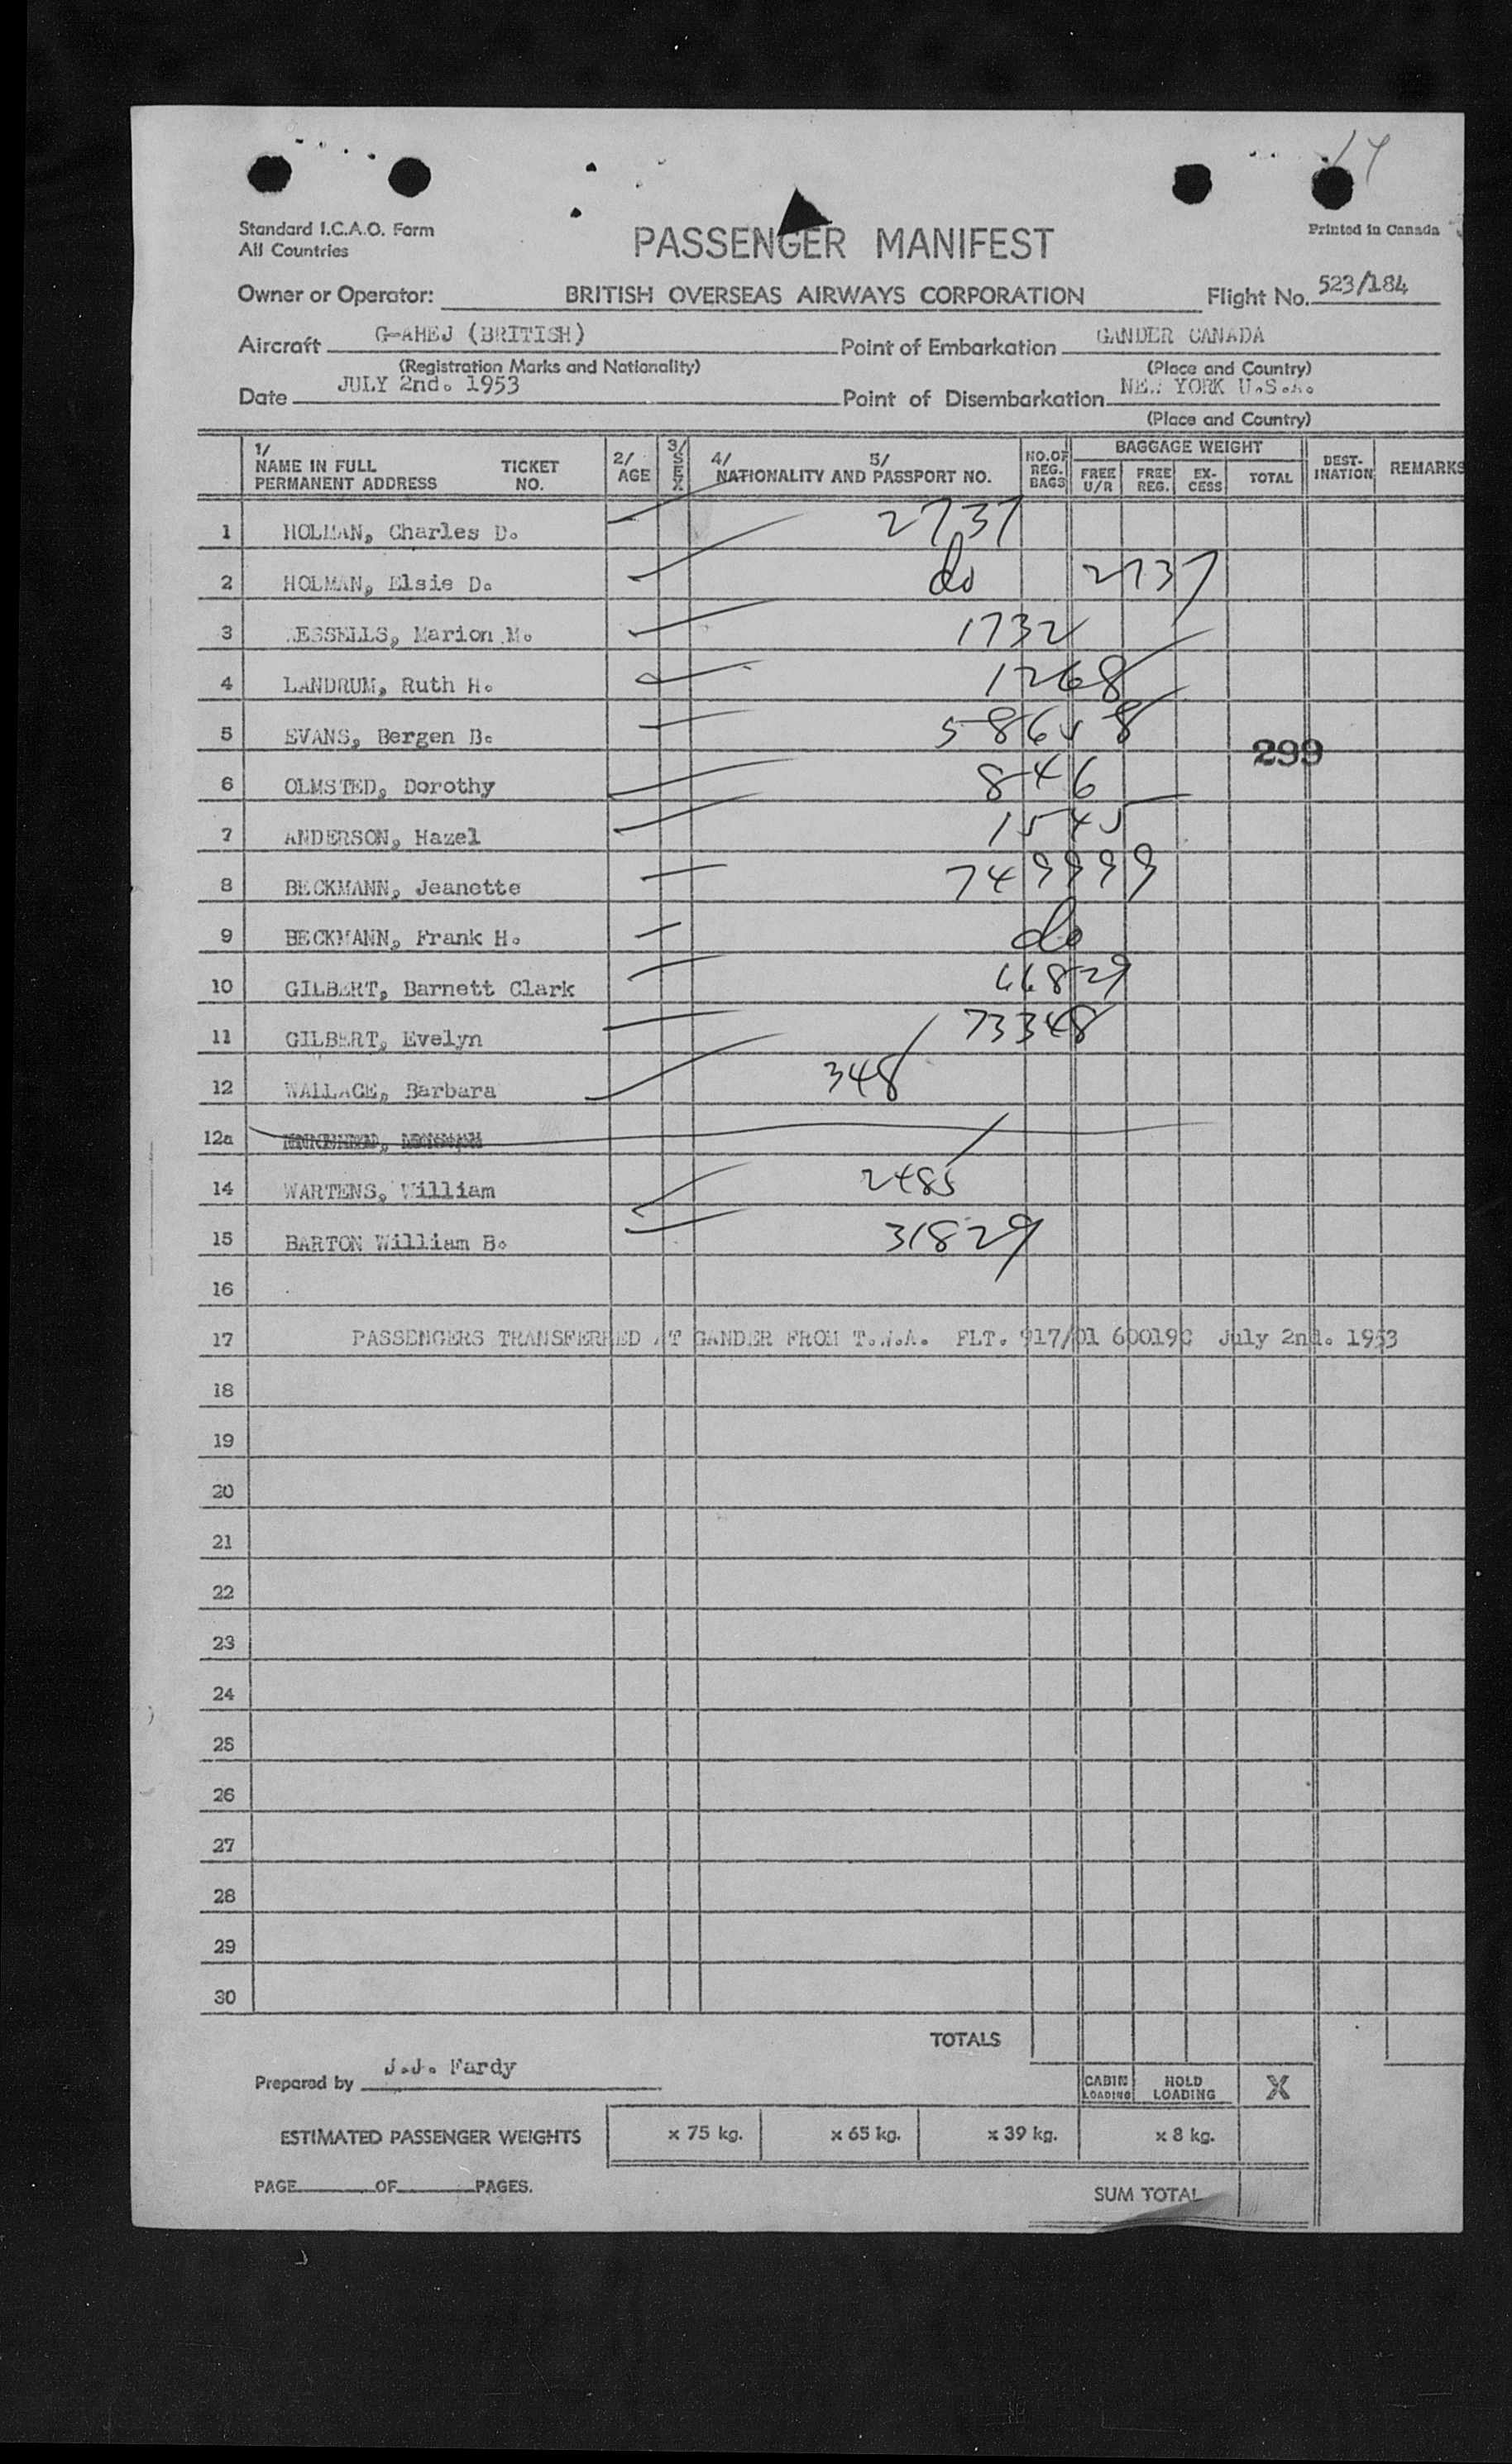 14
Standard I.C.A.O. Form
All Countries
PASSENGER MANIFEST
Printed in Canada
Owner or Operator: BRITISH OVERSEAS AIRWAYS CORPORATION Flight No. 523/184
Aircraft G-AHEJ (BRITISH) Point of Embarkation GANDER CANADA
(Registration Marks and Nationality) (Place and Country)
Date JULY 2nd. 1953 Point of Disembarkation NEW YORK U.S.A.
(Place and Country)
1/ NAME IN FULL PERMANENT ADDRESS TICKET NO. 2/ AGE 3/ SEX 4/ 5/ NATIONALITY AND PASSPORT NO. NO. OF REG. BAGS BAGGAGE WEIGHT FREE U/R FREE REG. EX-CESS TOTAL DEST-INATION REMARKS
1 HOLMAN, Charles D. 2737
2 HOLMAN, Elsie D. do 2737
3 ESSELLS, Marion M. 1732
4 LANDRUM, Ruth H. 1268
5 EVANS, Bergen B.
299
6 OLMSTED, Dorothy 846
7 ANDERSON, Hazel 1545
8 BECKMANN, Jeanette 749999
9 BECKMANN, Frank H. do
10 GILBERT, Barnett Clark
11 GILBERT, Evelyn 73348
12 WALLACE, Barbara 348
12a
14 WARTENS, William 2485
15 BARTON William B. 31829
16
17 PASSENGERS TRANSFERRED AT GANDER FROM T.W.A. FLT. 917/01 60019C July 2nd. 1953
18
19
20
21
22
23
24
25
26
27
28
29
30
TOTALS
Prepared by J.J. Fardy
CABIN LOADING HOLD LOADING X
ESTIMATED PASSENGER WEIGHTS x 75 kg. x 65 kg. x 39 kg. x 8 kg.
PAGE OF PAGES.
SUM TOTAL